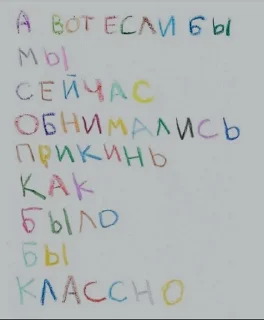 А ВОТ ЕСЛИ БЫ
МЫ
СЕЙЧАС
ОБНИМАЛИСЬ
ПРИКИНЬ
КАК
БЫЛО
БЫ
КЛАССНО